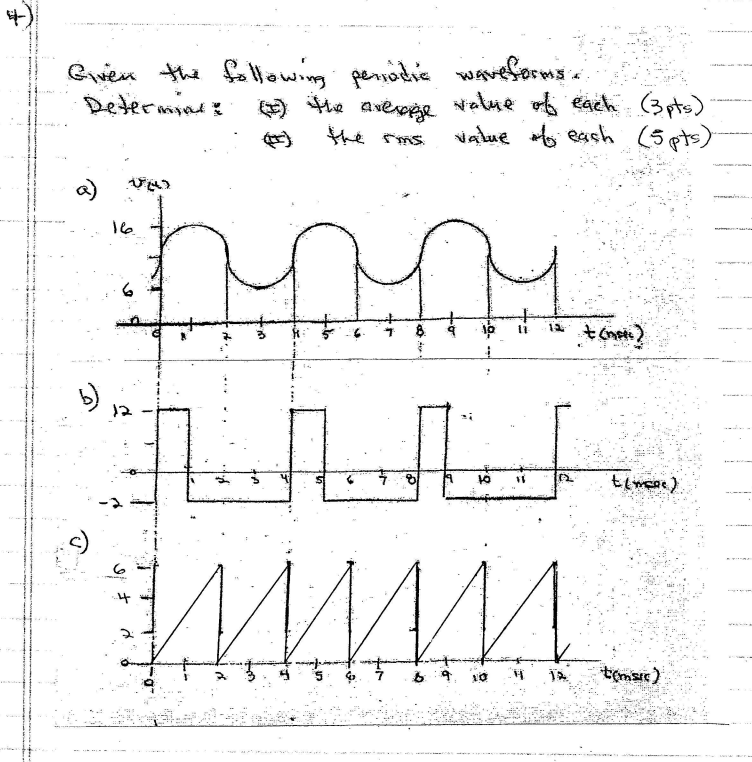 4)
Given the following periodic waveforms.
Determine: (I) the average value of each (3pts)
(II) the rms value of each (5pts)
a) v(t)
16
6
0
0 1 2 3 4 5 6 7 8 9 10 11 12 t(msec)
b)
12
0
1 2 3 4 5 6 7 8 9 10 11 12 t(msec)
-2
c)
6
4
2
0
0 1 2 3 4 5 6 7 8 9 10 11 12 t(msec)